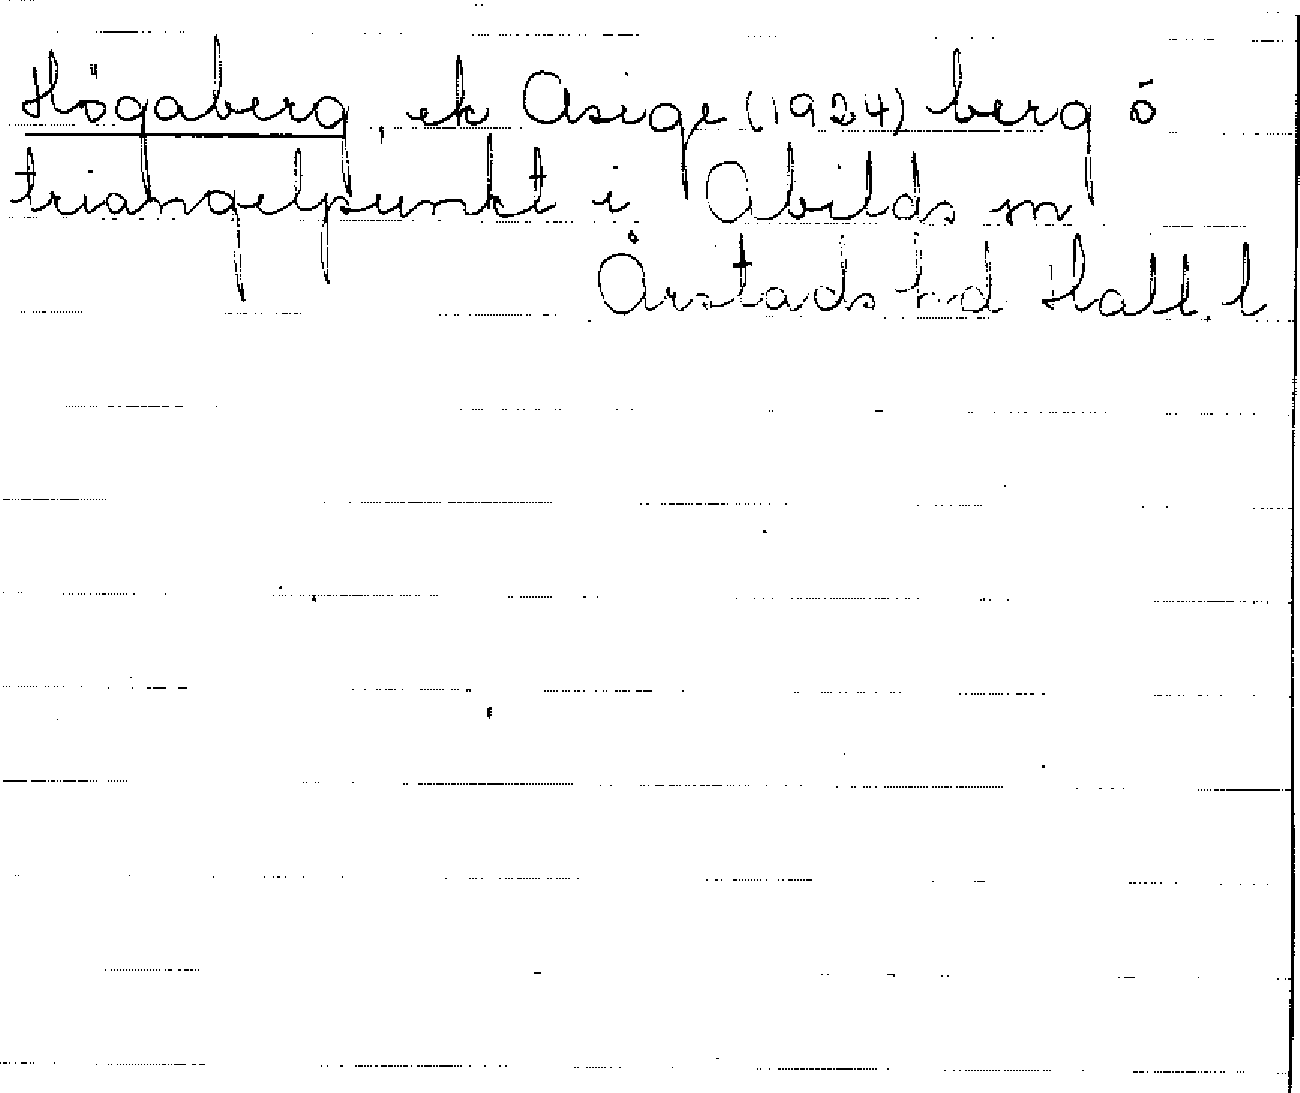 Högaberg, ek Asige (1924) berg ö
triangelpunkt i Abilds sn
Årstads hd Hall. l